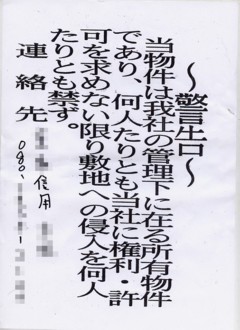 〜警告〜
当物件は我社の管理下に在る所有物件
であり、何人たりとも当社に権利・許
可を求めない限り敷地への侵入を何人
たりとも禁ず。
連絡先
信用
080-